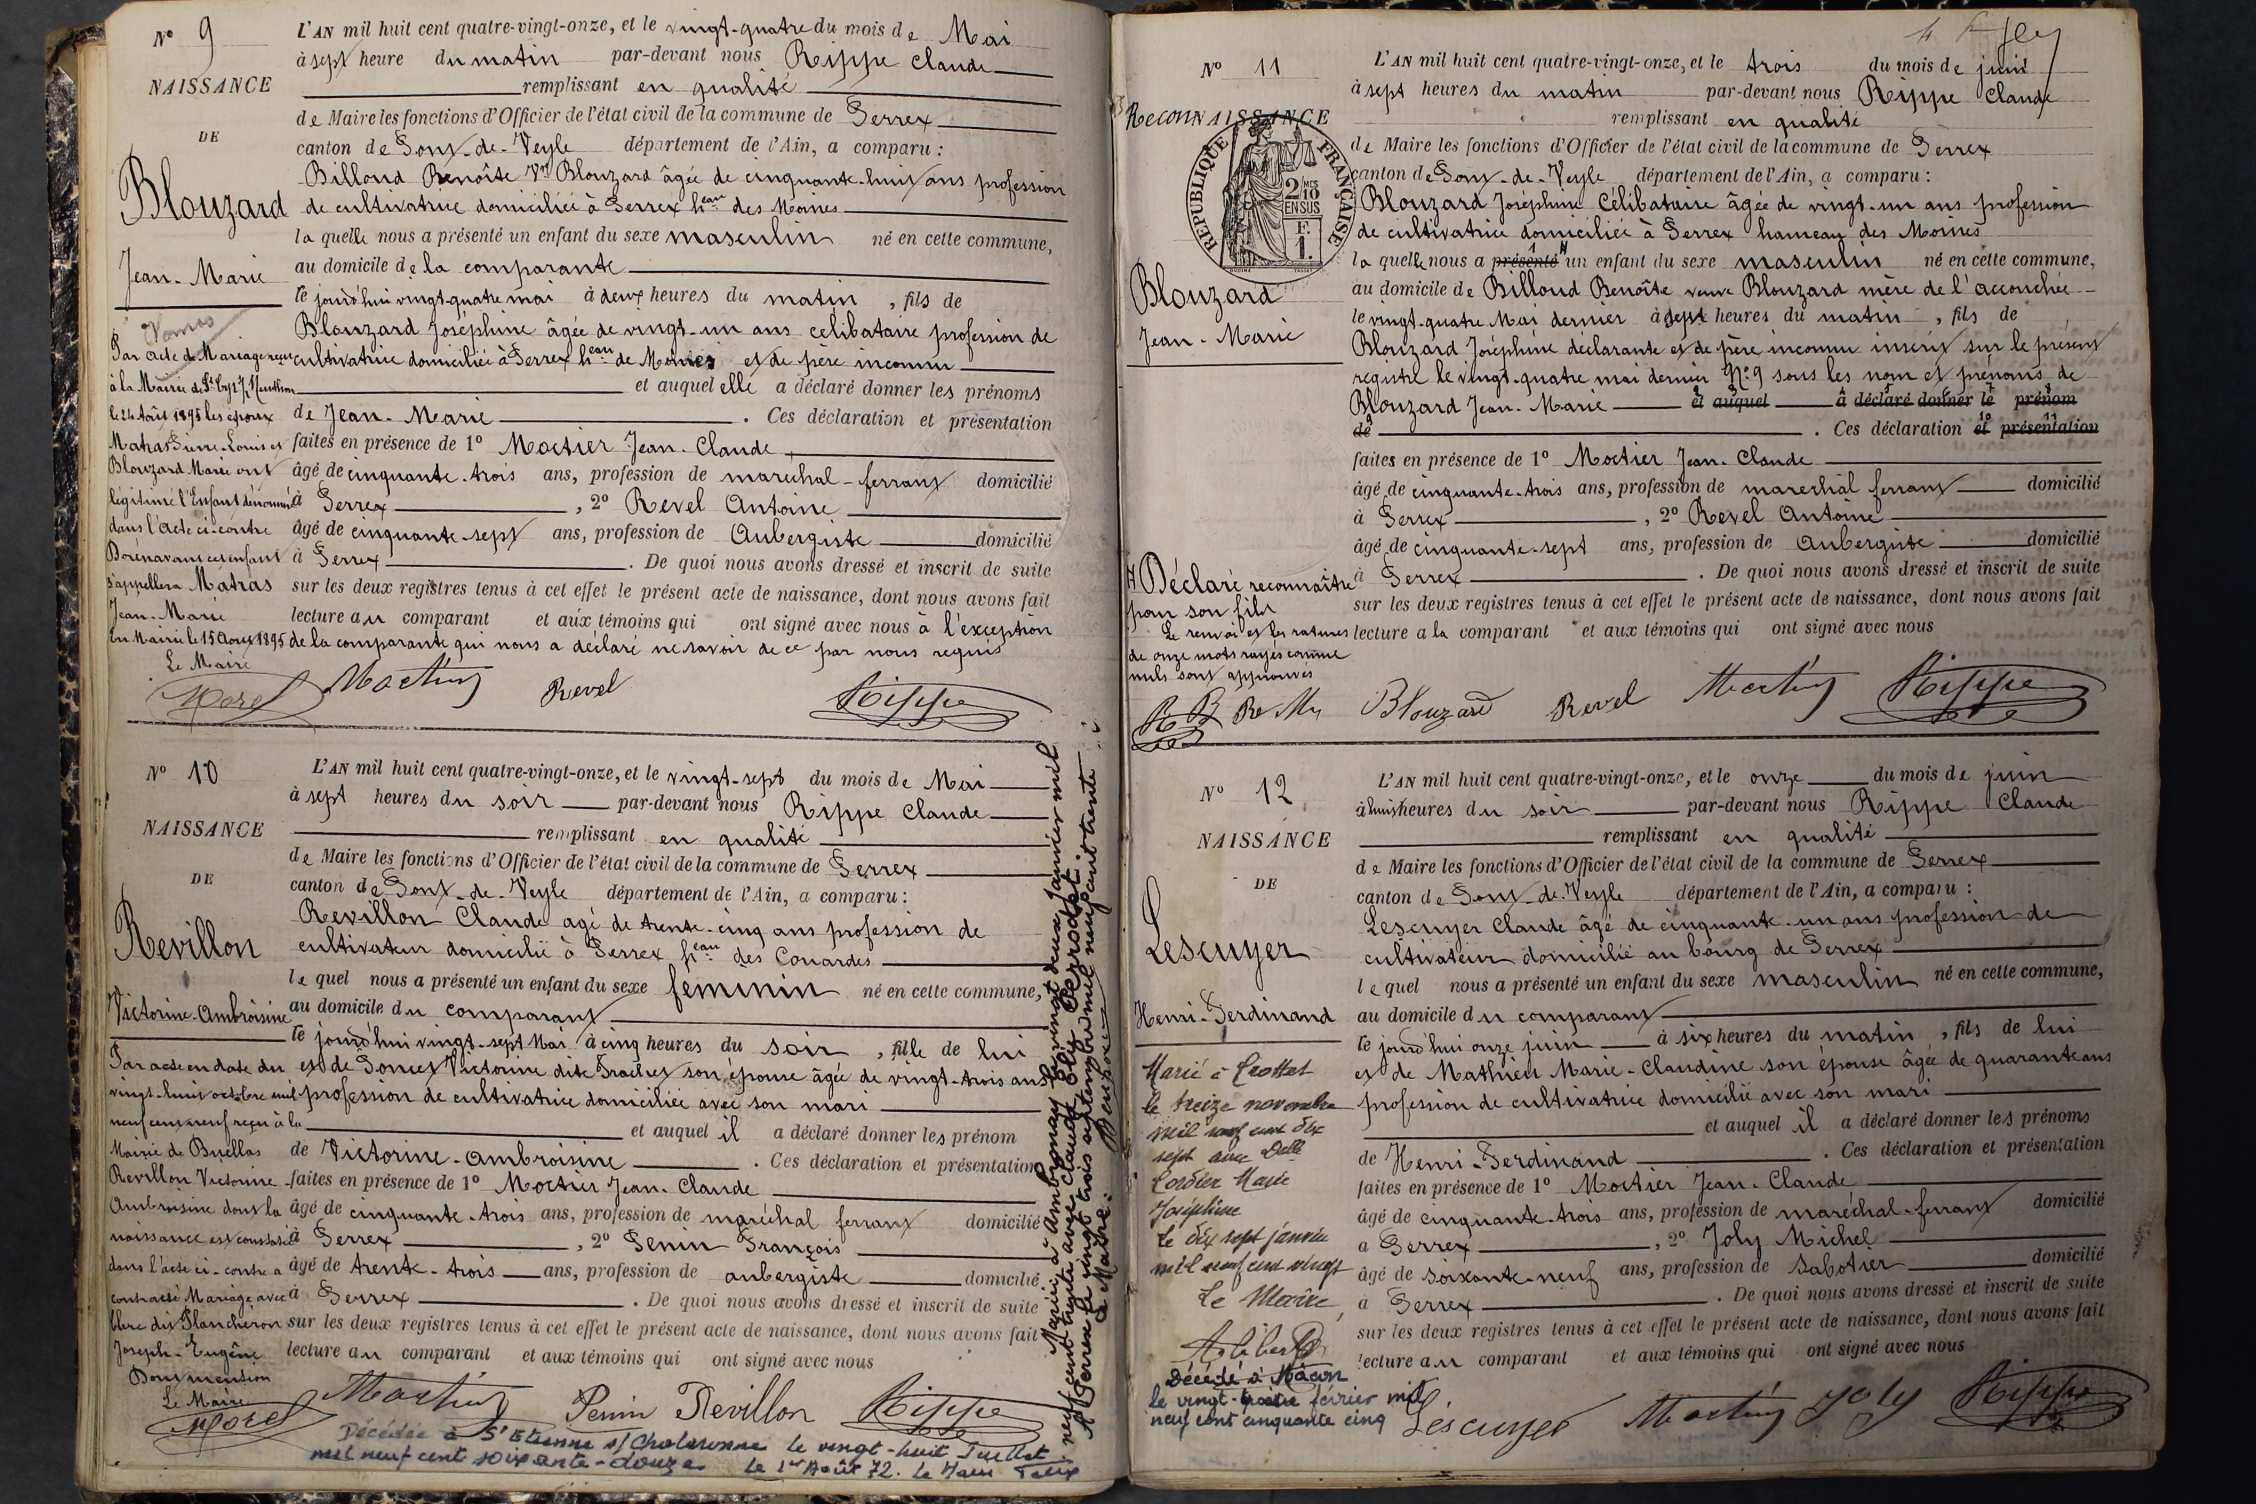 N° 9
NAISSANCE
DE
Blouzard
Jean-Marie
Par acte de Mariage reçu
à la Mairie de St Cyr s/ Menthon
le 24 Août 1895 les époux
Matras Pierre-Louis et
Blouzard Marie ont
légitimé l'Enfant dénommé
dans l'acte ci-contre
Dorénavant cet enfant
s'appellera Matras
Jean-Marie
En Mairie le 15 1895
Le Maire
Morel
L'AN mil huit cent quatre-vingt-onze, et le vingt-quatre du mois de Mai
à sept heure du matin par-devant nous Rippe Claude
remplissant en qualité
de Maire les fonctions d'Officier de l'état civil de la commune de Perrex
canton de Pont-de-Veyle département de l'Ain, a comparu :
Billoud Benoîte Vve Blouzard âgée de cinquante-huit ans profession
de cultivatrice domiciliée à Perrex heau des Moines
la quelle nous a présenté un enfant du sexe masculin né en cette commune,
au domicile de la comparante
le jourd'hui vingt-quatre mai à deux heures du matin, fils de
Blouzard Joséphine âgée de vingt-un ans celibataire profession de
cultivatrice domiciliée à Perrex heau de Moines et de père inconnu
et auquel elle a déclaré donner les prénoms
de Jean-Marie . Ces déclaration et présentation
faites en présence de 1° Moctier Jean-Claude
âgé de cinquante-trois ans, profession de maréchal-ferrant domicilié
à Perrex , 2° Revel Antoine
âgé de cinquante-sept ans, profession de Aubergiste domicilié
à Perrex . De quoi nous avons dressé et inscrit de suite
sur les deux registres tenus à cet effet le présent acte de naissance, dont nous avons fait
lecture au comparant et aux témoins qui ont signé avec nous à l'exception
de la comparante qui nous a déclaré ne savoir de ce par nous requis
Moctier Revel Rippe
N° 10
NAISSANCE
DE
Revillon
Victorine-Ambroisine
Par acte en date du
vingt-huit octobre mil
neuf cent neuf reçu à la
Mairie de Buellas
Revillon Victorine
Ambroisine dont la
naissance est constatée
dans l'acte ci-contre a
contracté Mariage avec
Plancheron
Joseph-Eugène
Dont mention
Le Maire
Morel
L'AN mil huit cent quatre-vingt-onze, et le vingt-sept du mois de Mai
à sept heures du soir par-devant nous Rippe Claude
remplissant en qualité
de Maire les fonctions d'Officier de l'état civil de la commune de Perrex
canton de Pont-de-Veyle département de l'Ain, a comparu :
Revillon Claude agé de trente-cinq ans profession de
cultivateur domicilié à Perrex heau des Couardes
le quel nous a présenté un enfant du sexe feminin né en cette commune,
au domicile du comparant
le jourd'hui vingt-sept Mai à cinq heures du soir, fille de lui
et de Victorine dite son épouse âgée de vingt-trois ans
profession de cultivatrice domiciliée avec son mari
et auquel il a déclaré donner les prénom
de Victorine-Ambroisine . Ces déclaration et présentation
faites en présence de 1° Moctier Jean-Claude
âgé de cinquante-trois ans, profession de maréchal ferrant domicilié
à Perrex , 2° Penin François
âgé de trente-trois ans, profession de aubergiste domicilié
à Perrex . De quoi nous avons dressé et inscrit de suite
sur les deux registres tenus à cet effet le présent acte de naissance, dont nous avons fait
lecture au comparant et aux témoins qui ont signé avec nous
Moctier Penin Revillon Rippe
Décédée à St Etienne s/ Chalaronne le vingt-huit Juillet
mil neuf cent soixante-douze Le 1er Août 72. Le Maire
Mariée à Ambronay le vingt deux janvier mil
neuf cent trente avec Claude Perrodet
A Perrex le vingt trois septembre mil neuf cent trente
Le Maire:
N° 11
RECONNAISSANCE
RÉPUBLIQUE FRANÇAISE
2/10
EN SUS
F.
1.
Blouzard
Jean-Marie
Déclaré reconnaître
pour son fils
Le renvoi et les ratures
de onze mots rayés comme
nuls sont approuvés
R B Re Mr
L'AN mil huit cent quatre-vingt-onze, et le trois du mois de juin
à sept heures du matin par-devant nous Rippe Claude
remplissant en qualité
de Maire les fonctions d'Officier de l'état civil de la commune de Perrex
canton de Pont-de-Veyle département de l'Ain, a comparu :
Blouzard Joséphine Célibataire âgée de vingt-un ans profession
de cultivatrice domiciliée à Perrex hameau des Moines
la quelle nous a présenté un enfant du sexe masculin né en cette commune,
au domicile de Billoud Benoîte veuve Blouzard mère de l'accouchée
le vingt-quatre Mai dernier à sept heures du matin, fils de
Blouzard Joséphine déclarante et de père inconnu inscrit sur le présent
registre le vingt-quatre mai dernier N° 9 sous les nom et prénoms de
Blouzard Jean-Marie et auquel a déclaré donner le prénom
de . Ces déclaration et présentation
faites en présence de 1° Moctier Jean-Claude
âgé de cinquante-trois ans, profession de marechal ferrant domicilié
à Perrex , 2° Revel Antoine
âgé de cinquante-sept ans, profession de Aubergiste domicilié
à Perrex . De quoi nous avons dressé et inscrit de suite
sur les deux registres tenus à cet effet le présent acte de naissance, dont nous avons fait
lecture a la comparant et aux témoins qui ont signé avec nous
Blouzard Revel Moctier Rippe
N° 12
NAISSANCE
DE
Lescuyer
Henri-Ferdinand
Marié à Crottet
le treize novembre
mil neuf cent dix
sept avec Delle
Cordier Marie
Joséphine
Le dix sept janvier
mil neuf cent vingt
Le Maire
Décédé à Mâcon
le vingt-troisième février mil
neuf cent cinquante cinq
L'AN mil huit cent quatre-vingt-onze, et le onze du mois de juin
à huit heures du soir par-devant nous Rippe Claude
remplissant en qualité
de Maire les fonctions d'Officier de l'état civil de la commune de Perrex
canton de Pont-de-Veyle département de l'Ain, a comparu :
Lescuyer Claude âgé de cinquante-un ans profession de
cultivateur domicilié au bourg de Perrex
le quel nous a présenté un enfant du sexe masculin né en cette commune,
au domicile du comparant
le jourd'hui onze juin à six heures du matin, fils de lui
et de Mathieu Marie-Claudine son épouse âgée de quarante ans
profession de cultivatrice domicilié avec son mari
et auquel il a déclaré donner les prénoms
de Henri-Ferdinand . Ces déclaration et présentation
faites en présence de 1° Moctier Jean-Claude
âgé de cinquante-trois ans, profession de maréchal-ferrant domicilié
a Perrex , 2° Joly Michel
âgé de soixante-neuf ans, profession de Sabotier domicilié
a Perrex . De quoi nous avons dressé et inscrit de suite
sur les deux registres tenus à cet effet le présent acte de naissance, dont nous avons fait
lecture au comparant et aux témoins qui ont signé avec nous
Léscuyer Moctier Joly Rippe